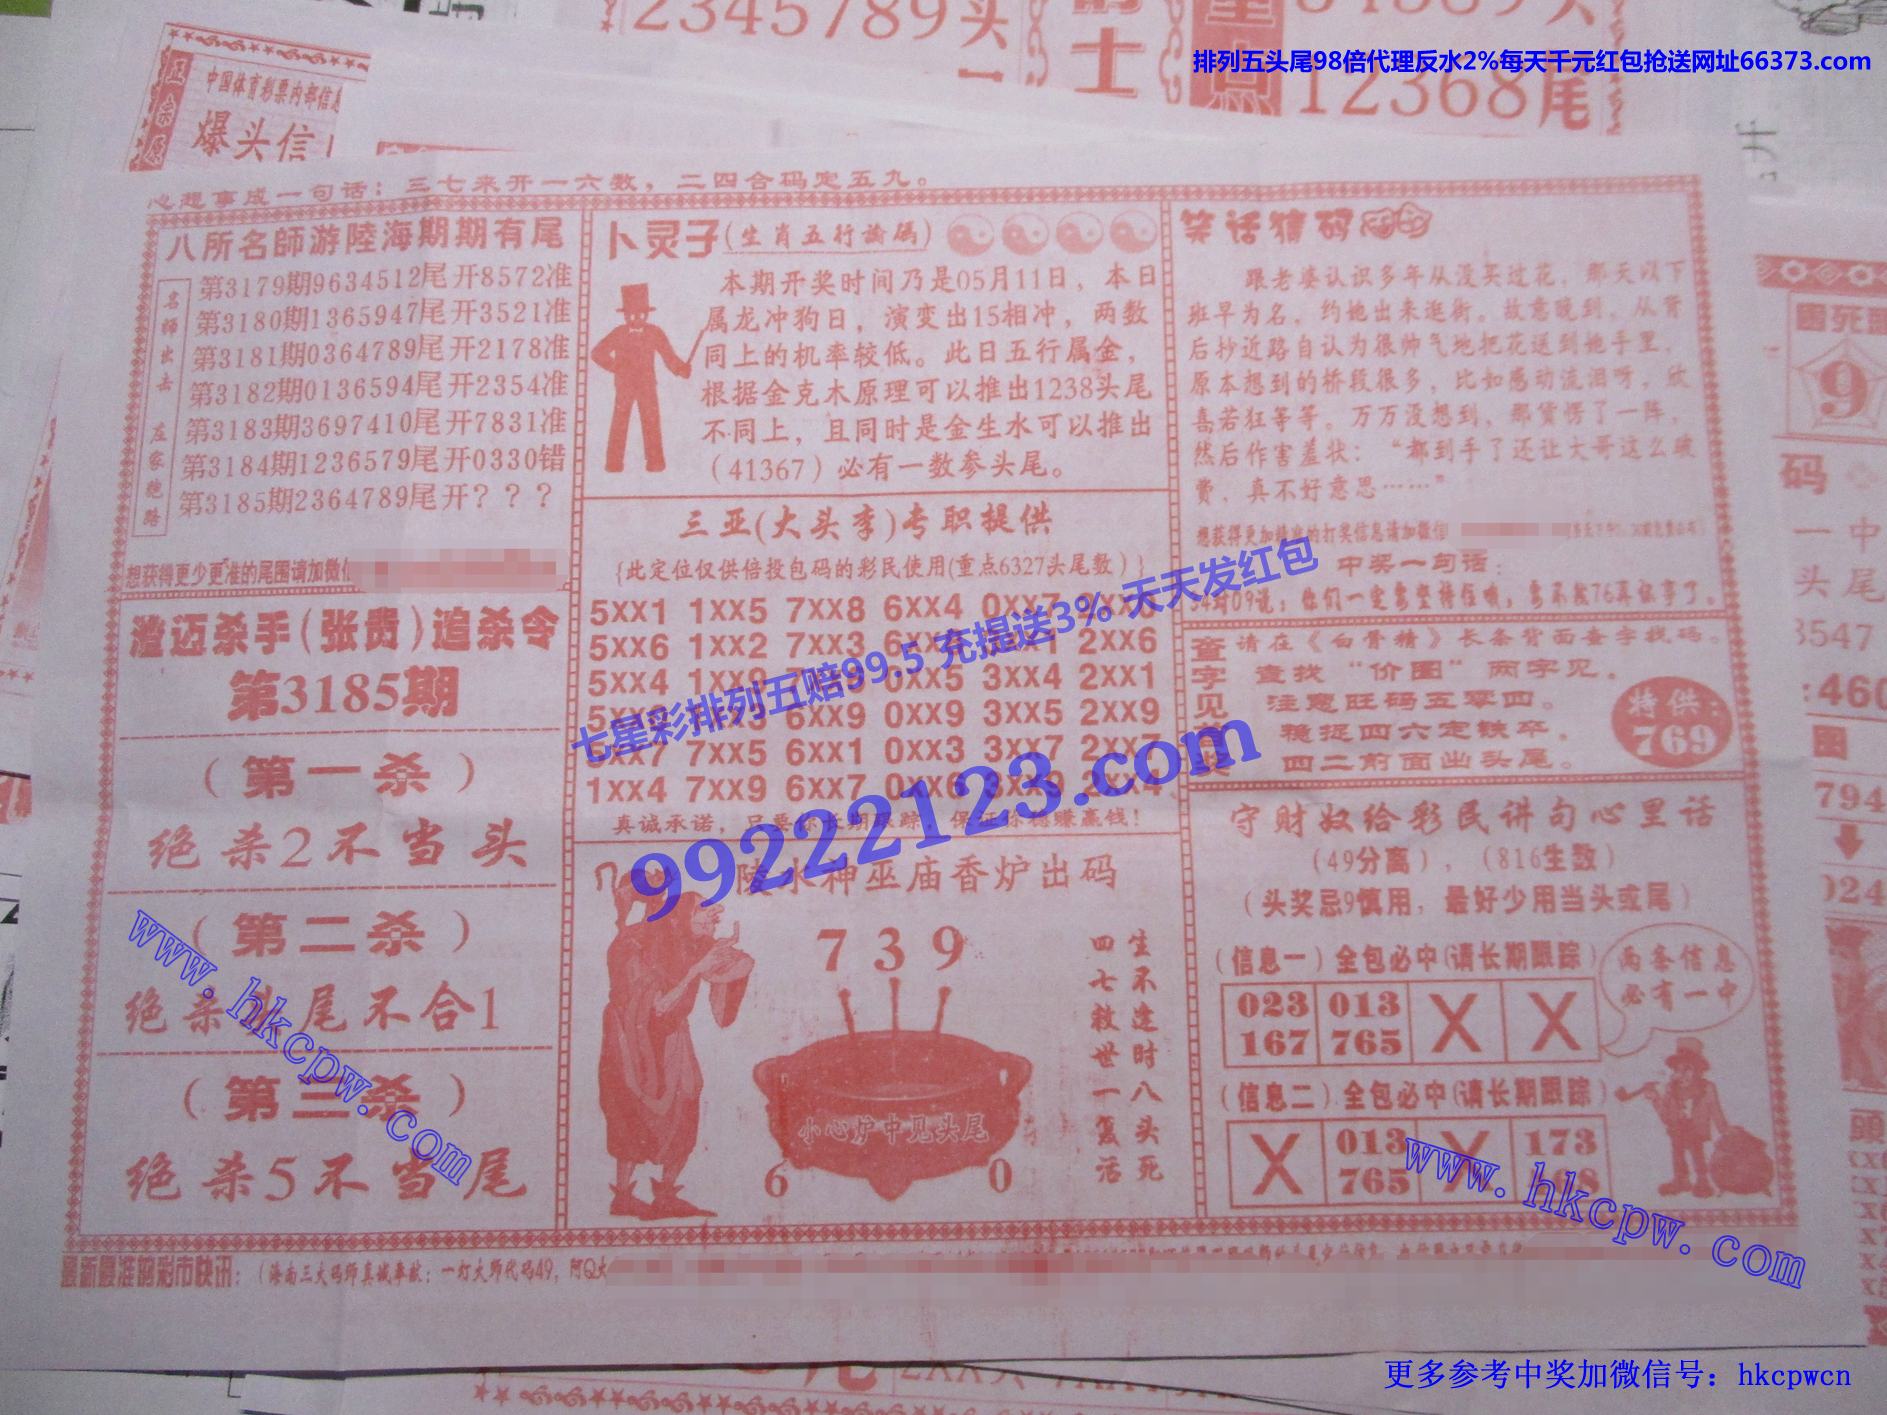 2345789头
士
12368尾
排列五头尾98倍代理反水2%每天千元红包抢送网址66373.com
中国体育彩票内部信息
爆头信
心想事成一句话：三七来开一六数，二四合码定五九。
八所名師游陸海期期有尾
名師出击 左家跑路
第3179期9634512尾开8572准
第3180期1365947尾开3521准
第3181期0364789尾开2178准
第3182期0136594尾开2354准
第3183期3697410尾开7831准
第3184期1236579尾开0330错
第3185期2364789尾开？？？
想获得更少更准的尾围请加微信
澄迈杀手(张贵)追杀令
第3185期
（第一杀）
绝杀2不当头
（第二杀）
绝杀头尾不合1
（第三杀）
绝杀5不当尾
卜灵子(生肖五行論碼)
本期开奖时间乃是05月11日，本日
属龙冲狗日，演变出15相冲，两数
同上的机率较低。此日五行属金，
根据金克木原理可以推出1238头尾
不同上，且同时是金生水可以推出
（41367）必有一数参头尾。
三亚(大头李)专职提供
{此定位仅供倍投包码的彩民使用(重点6327头尾数)}
5XX1 1XX5 7XX8 6XX4 0XX7
5XX6 1XX2 7XX3 2XX6
5XX4 0XX5 3XX4 2XX1
6XX9 0XX9 3XX5 2XX9
7XX5 6XX1 0XX3 3XX7 2XX7
1XX4 7XX9 6XX7
真诚承诺，只要你长期跟踪，保证你稳赚赢钱！
七星彩排列五赔99.5 充提送3% 天天发红包
99222123.com
陵水神巫庙香炉出码
739
小心炉中见头尾
6 0
生不逢时八头死
四七救世一复活
笑话猜码
跟老婆认识多年从没买过花，那天以下
班早为名，约她出来逛街。故意晚到，从背
后抄近路自认为很帅气地把花送到她手里，
原本想到的桥段很多，比如感动流泪呀，欣
喜若狂等等。万万没想到，那货愣了一阵，
然后作害羞状：“都到手了还让大哥这么破
费，真不好意思……”
想获得更加精准的打奖信息请加微信
中奖一句话：
查字见奖
请在《白骨精》长条背面查字找码
查找“价图”两字见。
注意旺码五零四。
稳捉四六定铁卒。
四二前面出头尾。
特供：
769
守财奴给彩民讲句心里话
（49分离），（816生数）
（头奖忌9慎用，最好少用当头或尾）
（信息一）全包必中(请长期跟踪)
023 013 X X
167 765
两条信息
必有一中
（信息二）全包必中(请长期跟踪)
X 013 X 173
765
最新最准的彩市快讯：（海南三大码师真诚奉献：一打大师代码49，阿Q大
www.hkcpw.com
www.hkcpw.com
更多参考中奖加微信号：hkcpwcn
9
码
一中
头尾
3547
:460
794
024